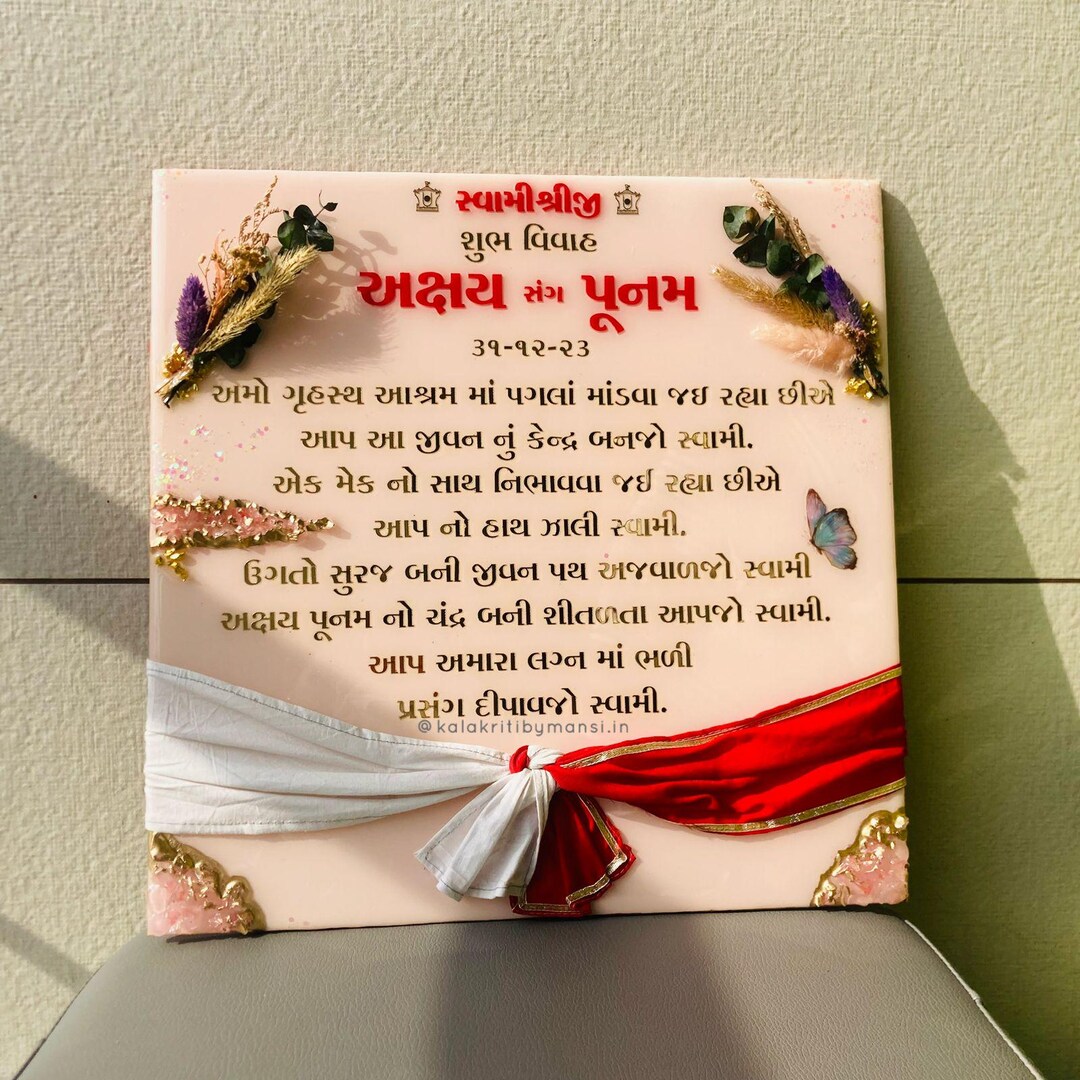 સ્વામીશ્રીજી
શુભ વિવાહ
અક્ષય સંગ પૂનમ
૩૧-૧૨-૨૩
અમો ગૃહસ્થ આશ્રમ માં પગલાં માંડવા જઇ રહ્યા છીએ
આપ આ જીવન નું કેન્દ્ર બનજો સ્વામી.
એક મેક નો સાથ નિભાવવા જઈ રહ્યા છીએ
આપ નો હાથ ઝાલી સ્વામી.
ઉગતો સુરજ બની જીવન પથ અજવાળજો સ્વામી
અક્ષય પૂનમ નો ચંદ્ર બની શીતળતા આપજો સ્વામી.
આપ અમારા લગ્ન માં ભળી
પ્રસંગ દીપાવજો સ્વામી.
@kalakritibymansi.in